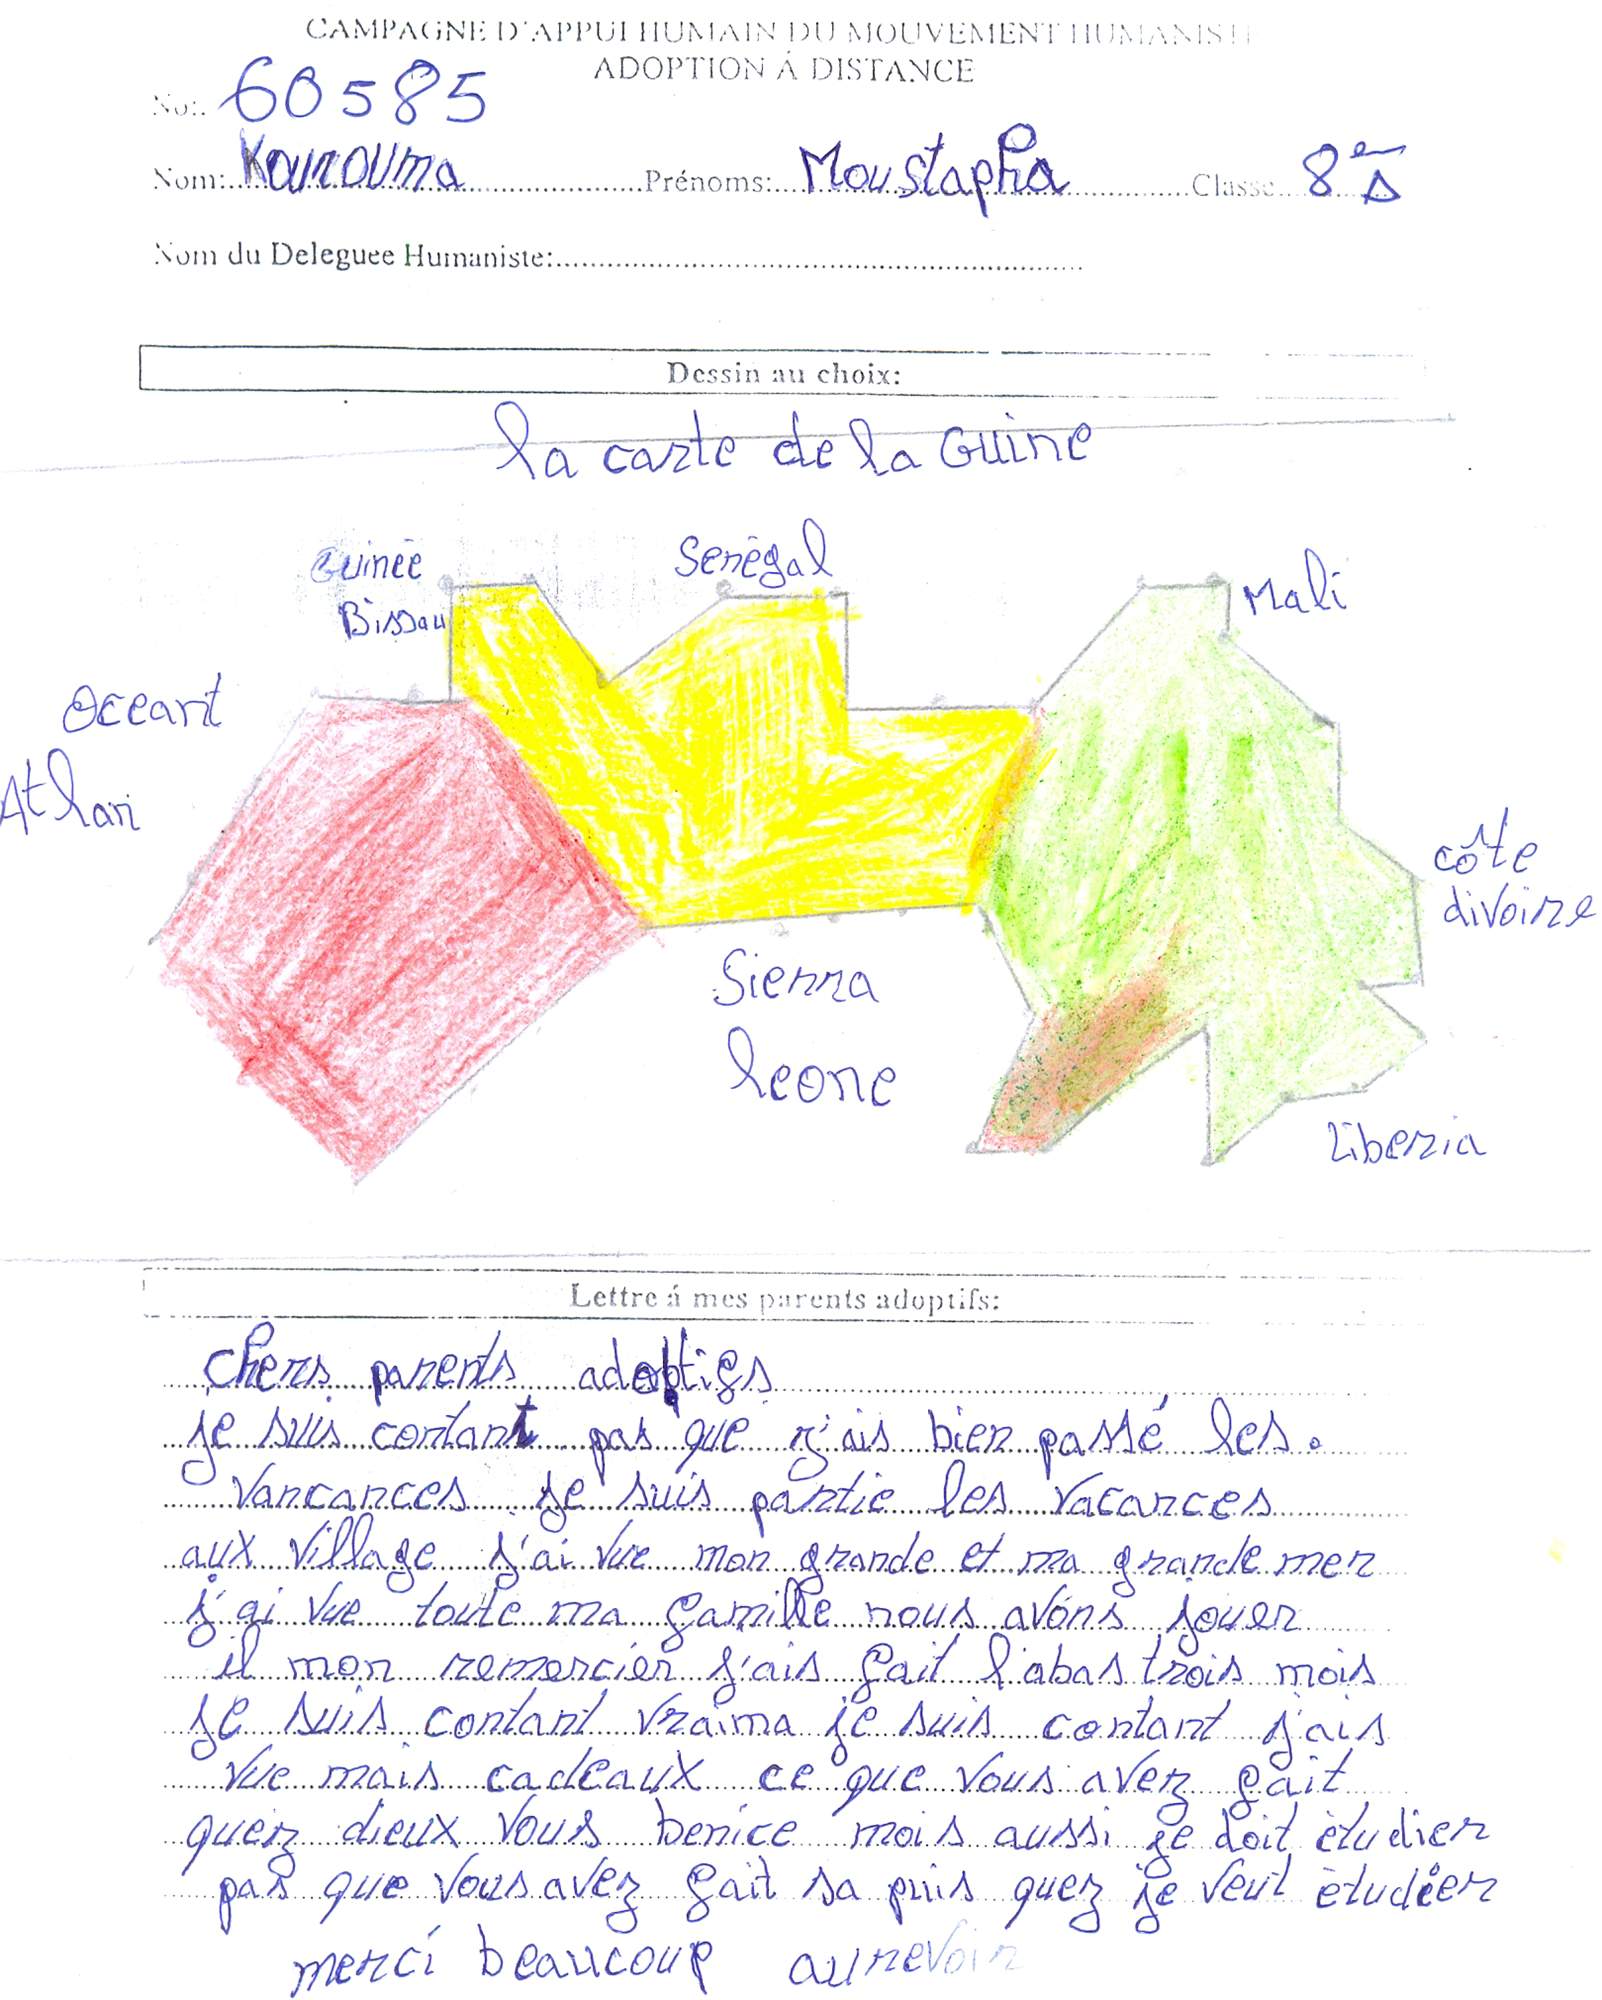 CAMPAGNE D'APPUI HUMAIN DU MOUVEMENT HUMANISTE
ADOPTION Á DISTANCE
No:. 60585
Nom: Kourouma Prénoms: Moustapha Classe 8e A
Nom du Deleguee Humaniste:
Dessin au choix:
la carte de la Guine
Guinée Senègal Mali
Bissau
Oceant
Atlan
côte
divoire
Sierra
leone
Liberia
Lettre á mes parents adoptifs:
Chers parents adoptifs
je suis contant pas que j'ais bien passé les.
vancances je suis partie les vacances
aux village j'ai vue mon grande et ma grande mer
j'ai vue toute ma famille nous avons jouer
il mon remercier j'ais fait l'abas trois mois
je suis contant vraima je suis contant j'ais
vue mais cadeaux ce que vous avez fait
quez dieux vous benice mois aussi je doit ètudier
pas que vous avez fait sa puis quez je veut ètudier
merci beaucoup aurevoir